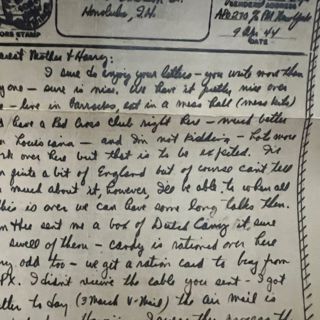 Honolulu, T.H.
SENDER'S ADDRESS
APO 270 % PM New York
9 Apr 44
DATE
ORS STAMP
earest Mother & Harry:
I sure do enjoy your letters – you write more than
yone – sure is nice. We have it pretty nice over
– live in Barracks, eat in a mess hall (mess kits)
d have a Red Cross Club right here – much better
n Louisiana – and I'm not kidding – Lots more
rk over here but that is to be expected. I've
n quite a bit of England but of course can't tell
much about it, however, I'll be able to when all
this is over we can have some long talks then.
sent me a box of Dutch Candy it sure
swell of them – candy is rationed over here
ny odd too – we get a ration card to buy from
PX. I didn't receive the cable you sent – I got
tter to day (3 March V-Mail) the air mail is